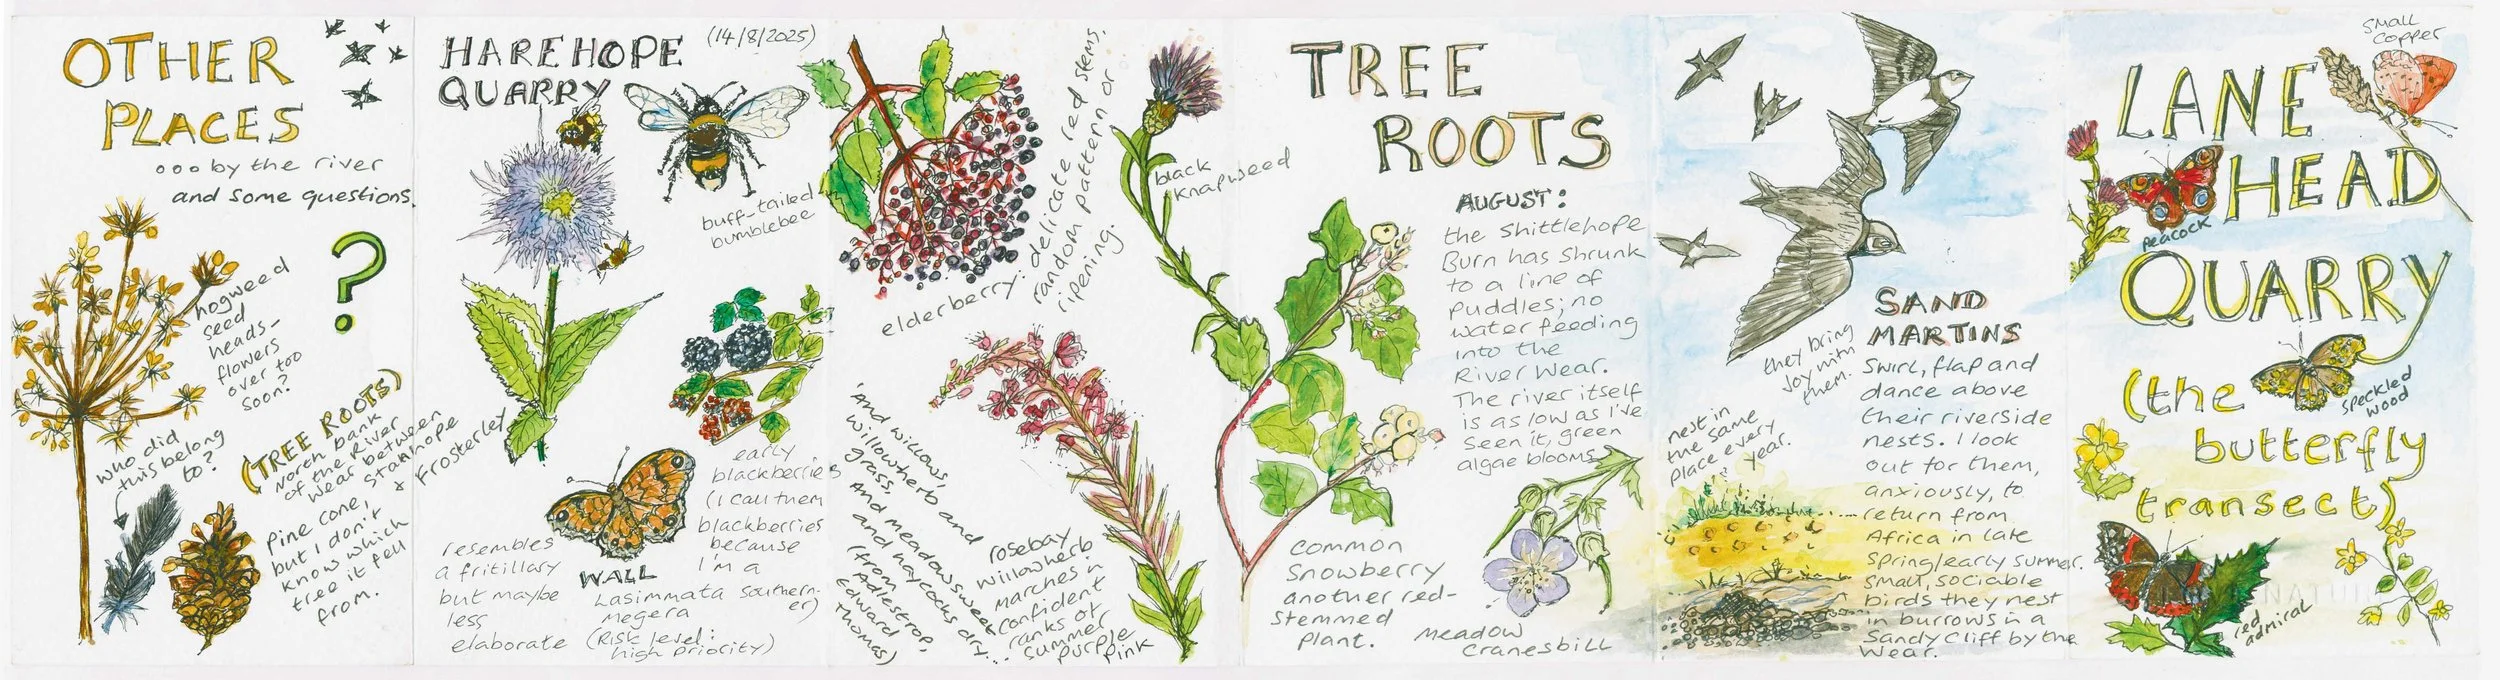 OTHER
PLACES
...by the river
and some questions.
?
hogweed
seed
heads-
flowers
over too
soon?
who did
this belong
to?
(TREE ROOTS)
North bank
of the River
Wear between
Stanhope
+ Frosterley
Pine cone,
but I don't
know which
tree it fell
from.
HAREHOPE
QUARRY
(14/8/2025)
buff-tailed
bumblebee
early
blackberries
(I call them
blackberries
because
I'm a
southern-
er)
resembles
a fritillary
but maybe
less
elaborate
WALL
Lasimmata
megera
(Risk level:
high priority)
elderberry: delicate red stems,
random pattern or
ripening.
black
knapweed
'And willows,
willowherb and
grass,
And meadowsweet
and haycocks dry...
(from
Adlestrop,
Edward
Thomas)
rosebay
willowherb
marches in
confident
ranks of
summer
purple
pink
TREE
ROOTS
AUGUST:
the Shittlehope
Burn has shrunk
to a line of
puddles; no
water feeding
into the
River Wear.
The river itself
is as low as I've
seen it, green
algae blooms
common
snowberry
another red-
stemmed
plant.
meadow
cranesbill
they bring
joy with
them.
nest in
the same
place every
year.
SAND
MARTINS
Swirl, flap and
dance above
their riverside
nests. I look
out for them,
anxiously, to
return from
Africa in late
Spring/early summer.
Small, sociable
birds they nest
in burrows in a
Sandy Cliff by the
Wear.
small
copper
LANE
HEAD
QUARRY
peacock
speckled
wood
(the
butterfly
transect)
red
admiral